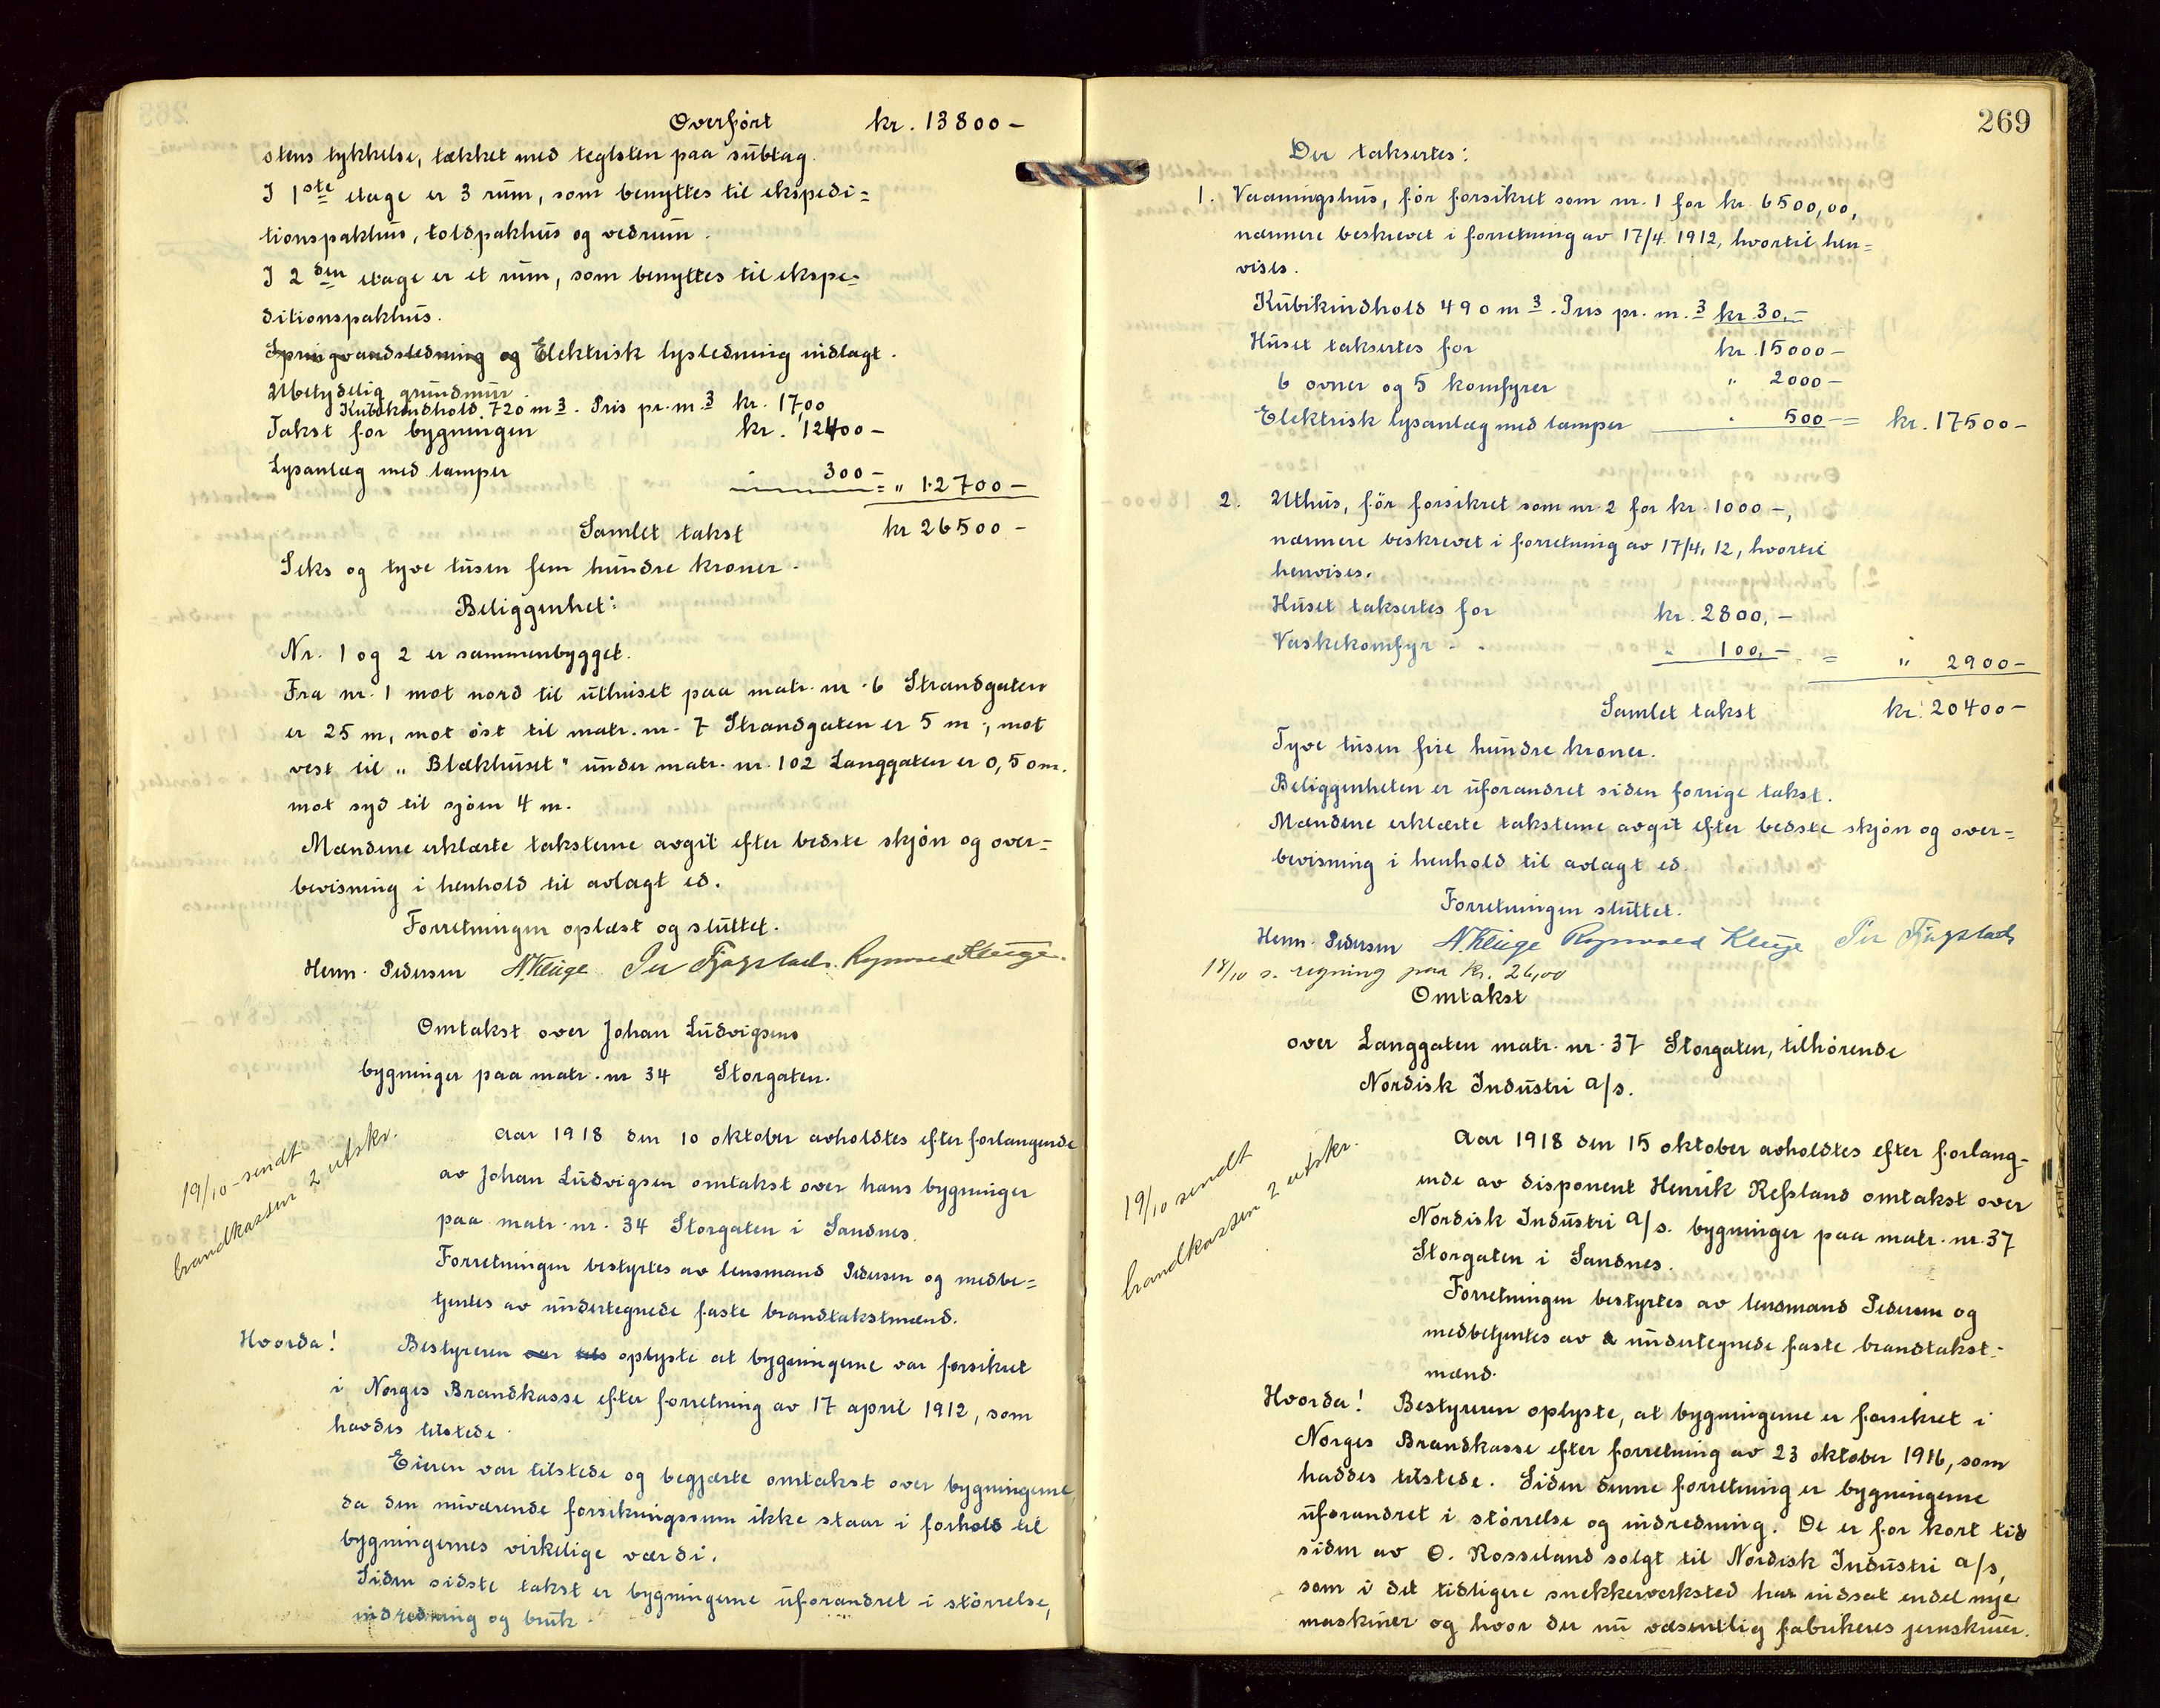 Overført kr. 13800 -
stens tykkelse, tækket med teglsten paa subtag.
I 1ste etage er 3 rum, som benyttes til ekspedi=
tionspakhus, toldpakhus og vedrum.
I 2den etage er et rum, som benyttes til ekspe=
ditionspakhus.
Springvandsledning og Elektrisk lysledning indlagt.
Ubetydelig grundmur.
Kubikindhold 720 m3. Pris pr. m.3 kr. 17,00
Takst for bygningen kr. 12400 -
Lysanlæg med lamper 300 - = " 12700 -
Samlet takst kr 26500 -
Seks og tyve tusen fem hundre kroner -
Beliggenhet:
Nr. 1 og 2 er sammenbygget.
Fra nr. 1 mot nord til uthuset paa matr. nr. 6 Strandgaten
er 25 m, mot øst til matr. nr. 7 Strandgaten er 5 m., mot
vest til "Blækhuset" under matr. nr. 102 Langgaten er 0,5 om.
mot syd til sjøen 4 m.
Mændene erklærte taksterne avgit efter bedste skjøn og over=
bevisning i henhold til avlagt ed.
Forretningen oplæst og sluttet.
Herm. Pedersen N Kluge Per Fjogstad. Rognvald Kluge.
Omtakst over Johan Ludvigsens
bygninger paa matr. nr 34 Storgaten.
19/10 - sendt
brandkassen 2 utskr.
Aar 1918 den 10 oktober avholdtes efter forlangende
av Johan Ludvigsen omtakst over hans bygninger
paa matr. nr. 34 Storgaten i Sandnes.
Forretningen bestyrtes av lensmand Pedersen og medbe=
tjentes av undertegnede faste brandtakstmænd.
Hvorda! Bestyreren oplyste at bygningerne var forsikret
i Norges Brandkasse efter forretning av 17 april 1912, som
havdes tilstede.
Eieren var tilstede og begjærte omtakst over bygningerne,
da den nuværende forsikringssum ikke staar i forhold til
bygningernes virkelige værdi.
Siden sidste takst er bygningerne uforandret i størrelse,
indredning og bruk.
269
Der taksertes:
1. Vaaningshus, før forsikret som nr. 1 for kr. 6500,00,
nærmere beskrevet i forretning av 17/4. 1912, hvortil hen=
vises.
Kubikindhold 490 m3. Pris pr. m.3 kr. 30,-
Huset taksertes for kr. 15000 -
6 ovner og 5 komfyrer " 2000 -
Elektrisk lysanlæg med lamper " 500 - = kr. 17500 -
2. Uthus, før forsikret som nr. 2 for kr. 1000 -,
nærmere beskrevet i forretning av 17/4. 12, hvortil
henvises.
Huset taksertes for kr. 2800,-
Vaskekomfyr " 100,- = " 2900 -
Samlet takst kr. 20400 -
Tyve tusen fire hundre kroner.
Beliggenheten er uforandret siden forrige takst.
Mændene erklærte taksterne avgit efter bedste skjøn og over=
bevisning i henhold til avlagt ed.
Forretningen sluttet.
Herm. Pedersen N Kluge Rognvald Kluge Per Fjogstad
18/10 s. regning paa kr. 26,00
Omtakst
over Langgaten matr. nr. 37 Storgaten, tilhørende
Nordisk Industri A/s.
19/10 sendt
brandkassen 2 utskr.
Aar 1918 den 15 oktober avholdtes efter forlang-
ende av disponent Henrik Refsland omtakst over
Nordisk Industri A/s. bygninger paa matr. nr. 37
Storgaten i Sandnes.
Forretningen bestyrtes av lensmand Pedersen og
medbetjentes av undertegnede faste brandtakst-
mænd.
Hvorda! Bestyreren oplyste, at bygningerne er forsikret i
Norges Brandkasse efter forretning av 23 oktober 1916, som
haddes tilstede. Siden denne forretning er bygningerne
uforandret i størrelse og indredning. De er for kort tid
siden av O. Rosseland solgt til Nordisk Industri A/s,
som i det tidligere snekkerverksted har indsat endel nye
maskiner og hvor der nu væsentlig fabrikeres jernskruer.